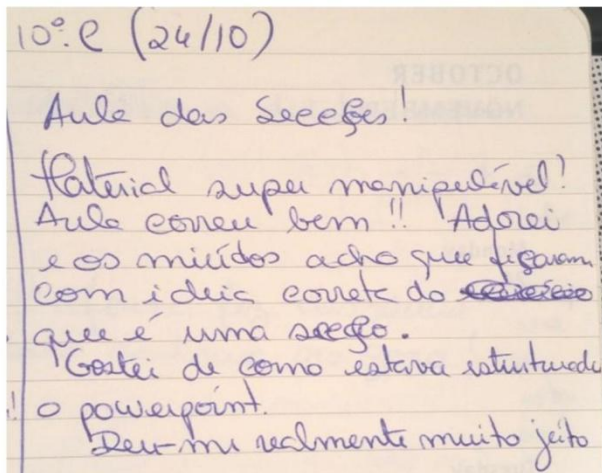 10º. C (24/10)
Aula das Secções!
Material super manipulável!
Aula correu bem!! Adorei
e os miúdos acho que ficaram
com ideia correta do
que é uma secção.
Gostei de como estava estruturado
o powerpoint.
Deu-me realmente muito jeito